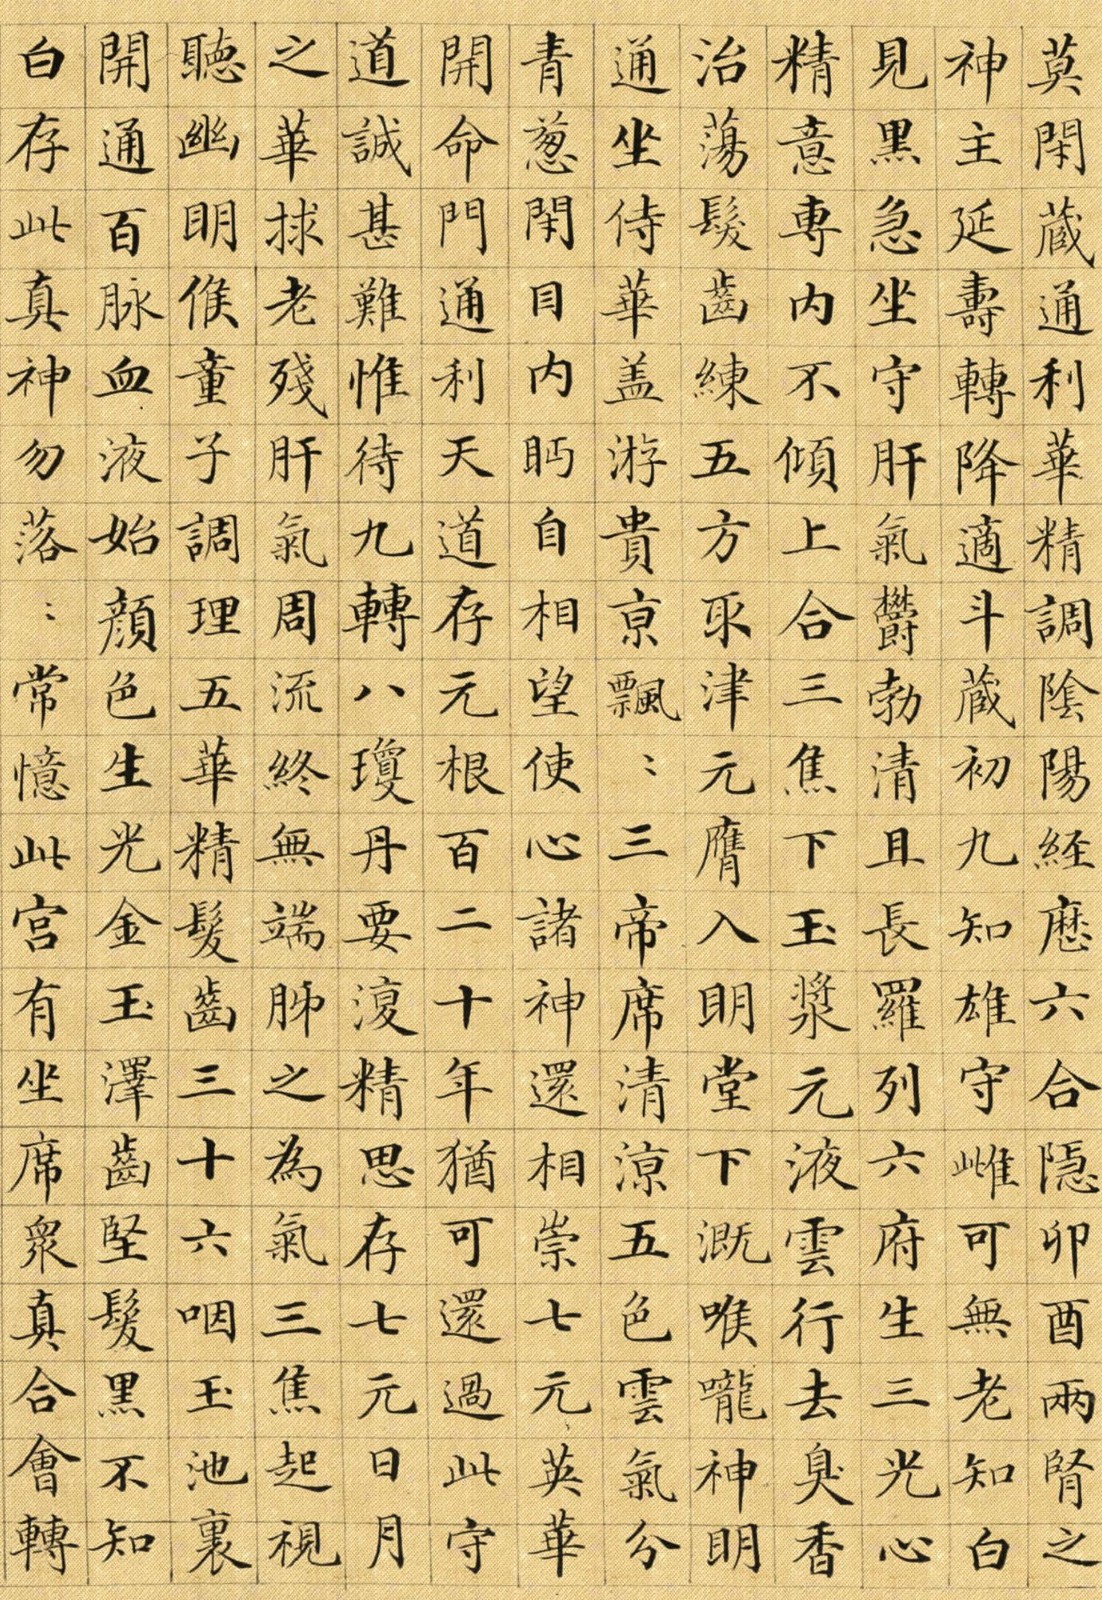 莫閑蔵通利華精調陰陽経歴六合隠卯酉兩腎之
神主延壽轉降適斗蔵初九知雄守雌可無老知白
見黒急坐守肝氣欝勃清且長羅列六府生三光心
精意専内不傾上合三焦下玉漿元液雲行去臭香
治蕩髮齒練五方取津元膺入明堂下溉喉嚨神明
通坐侍華盖游貴亰飄〻三帝席清涼五色雲氣分
青蔥閑目内眄自相望使心諸神還相崇七元英華
開命門通利天道存元根百二十年猶可還過此守
道誠甚難惟待九轉八瓊丹要復精思存七元日月
之華捄老殘肝氣周流終無端肺之為氣三焦起視
聽幽明候童子調理五華精髮齒三十六咽玉池裏
開通百脉血液始顔色生光金玉澤齒堅髮黒不知
白存此真神勿落〻常憶此宮有坐席衆真合會轉